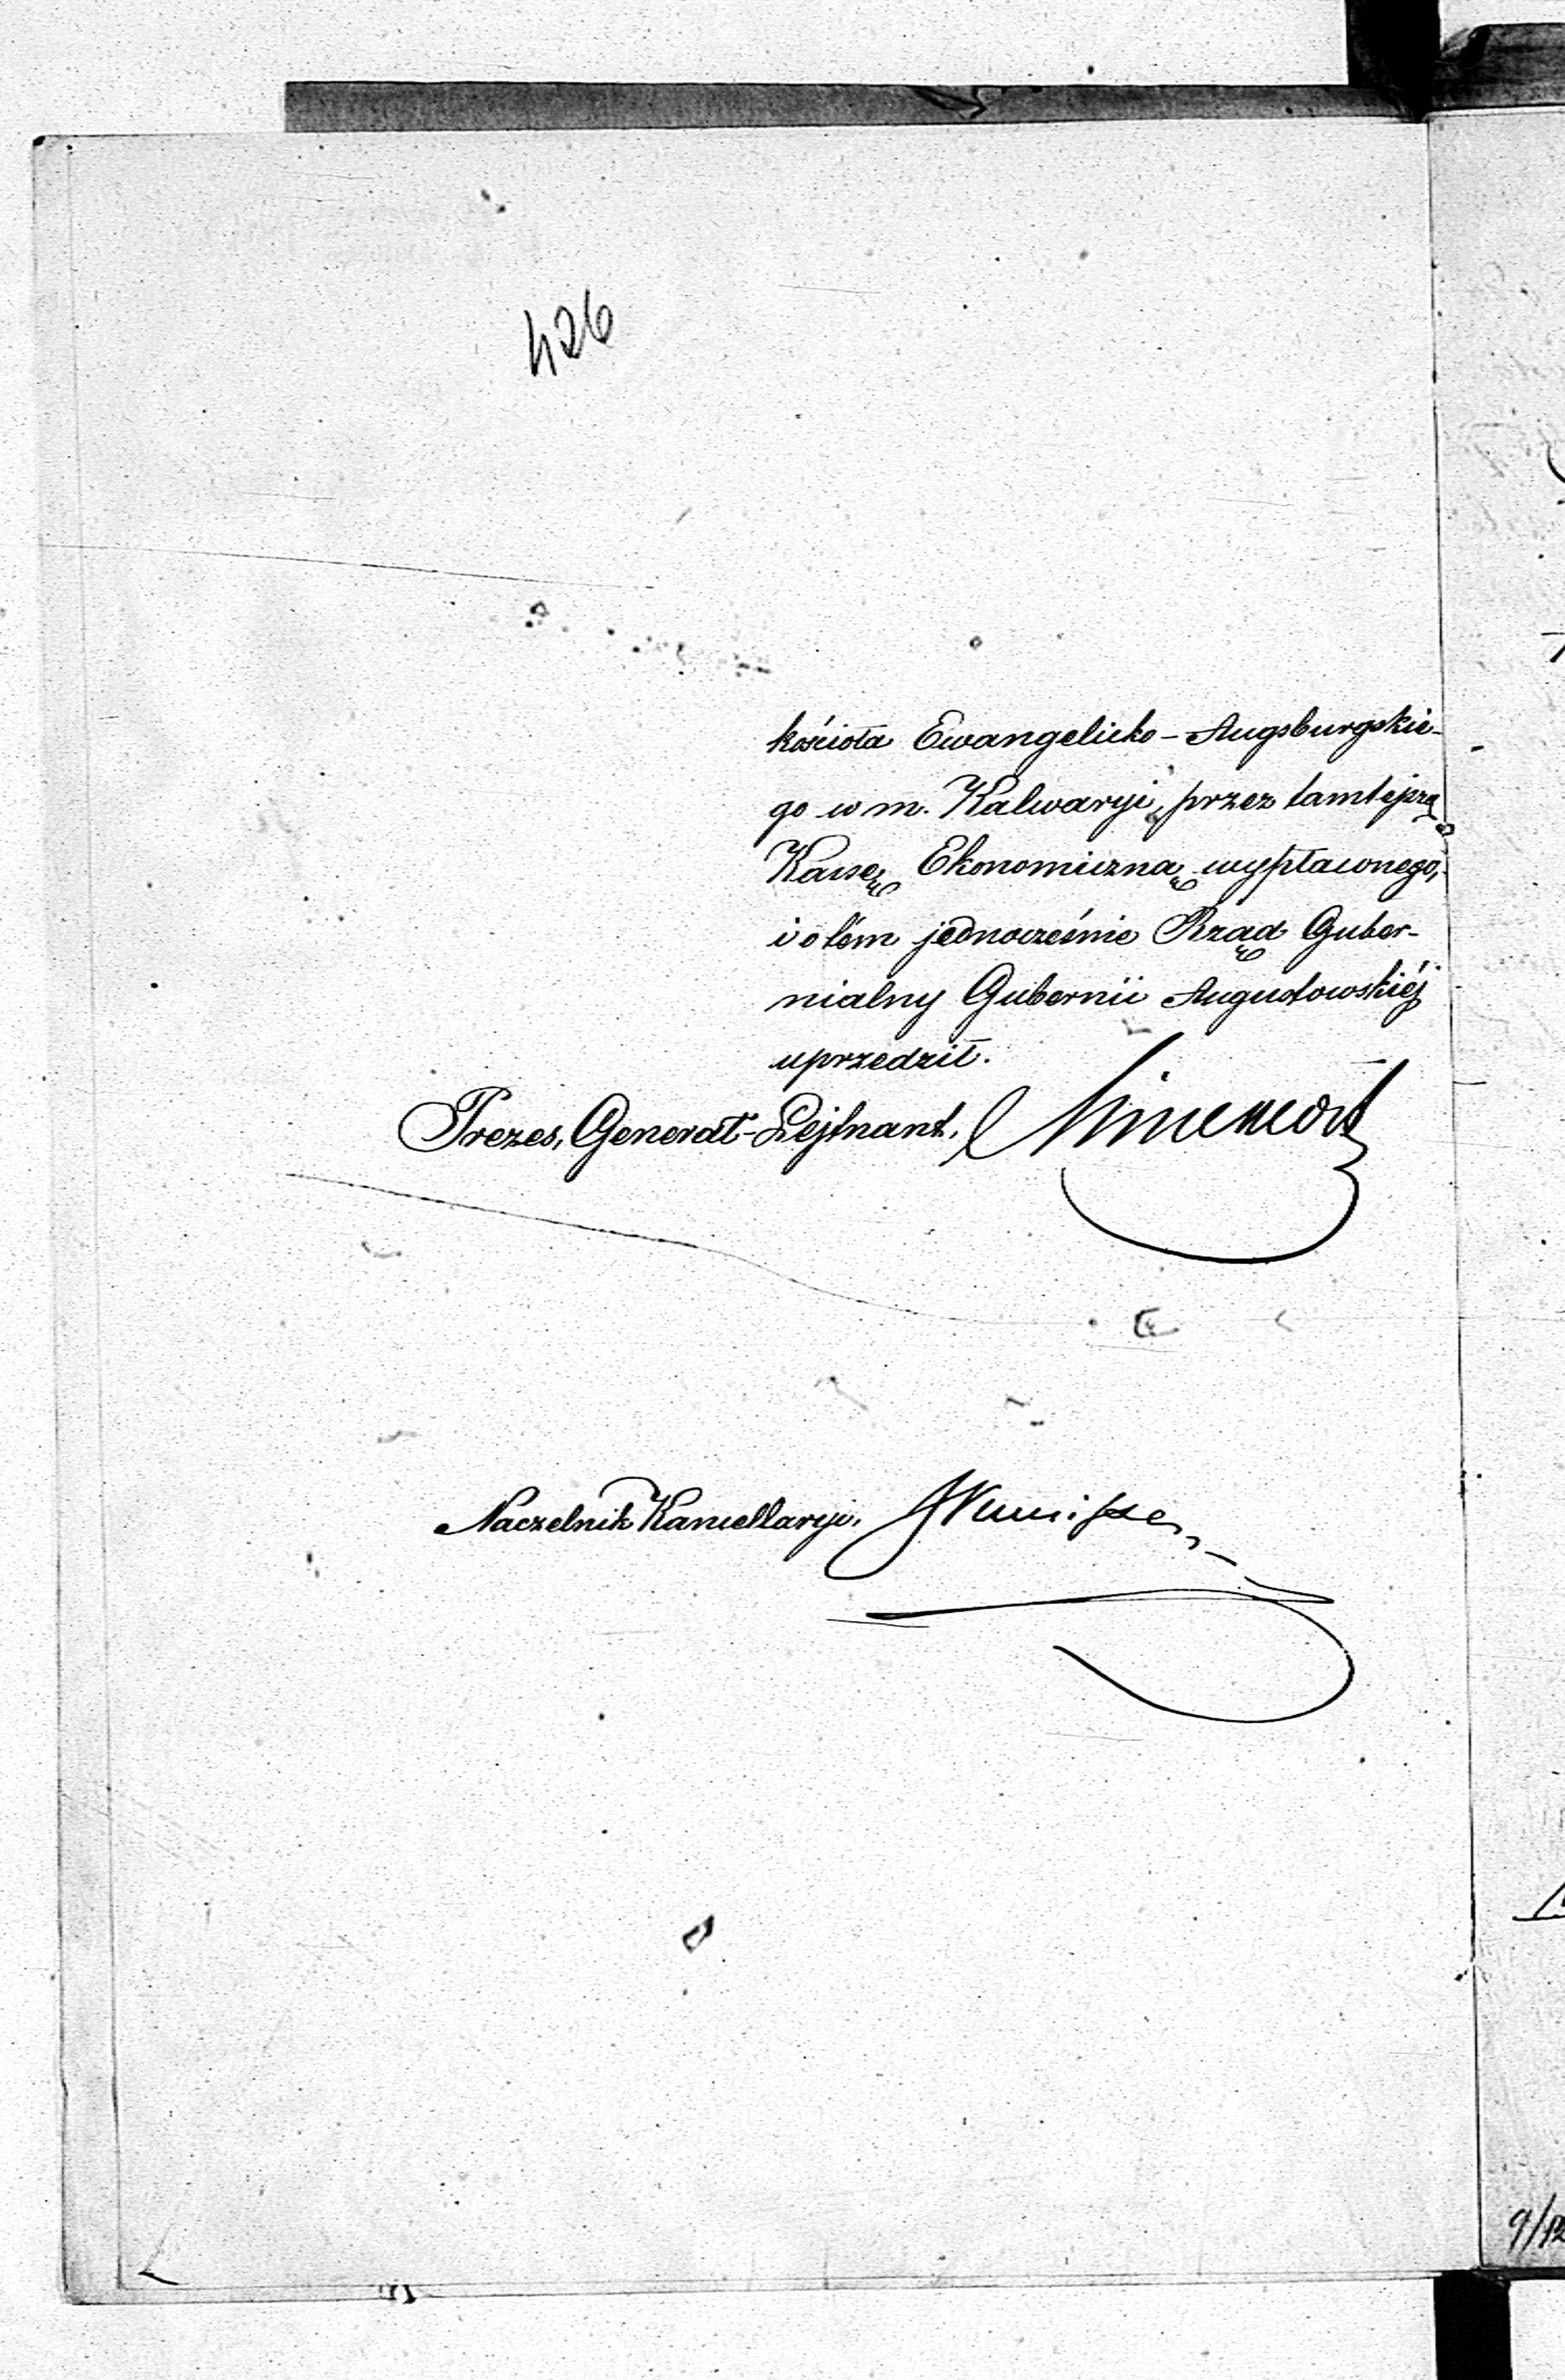 426
kościoła Ewangelicko-Augsburgskie-
go w m. Kalwaryi, przez tamtejszą
Kassę Ekonomiczną wypłaconego,
i o tém jednocześnie Rząd Guber-
nialny Gubernii Augustowskiéj
uprzedził.
Prezes, Generał-Lejtnant,
Naczelnik Kancellaryi,
9/12